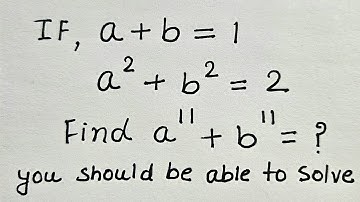 IF, a + b = 1
a² + b² = 2
Find a¹¹ + b¹¹ = ?
you should be able to solve